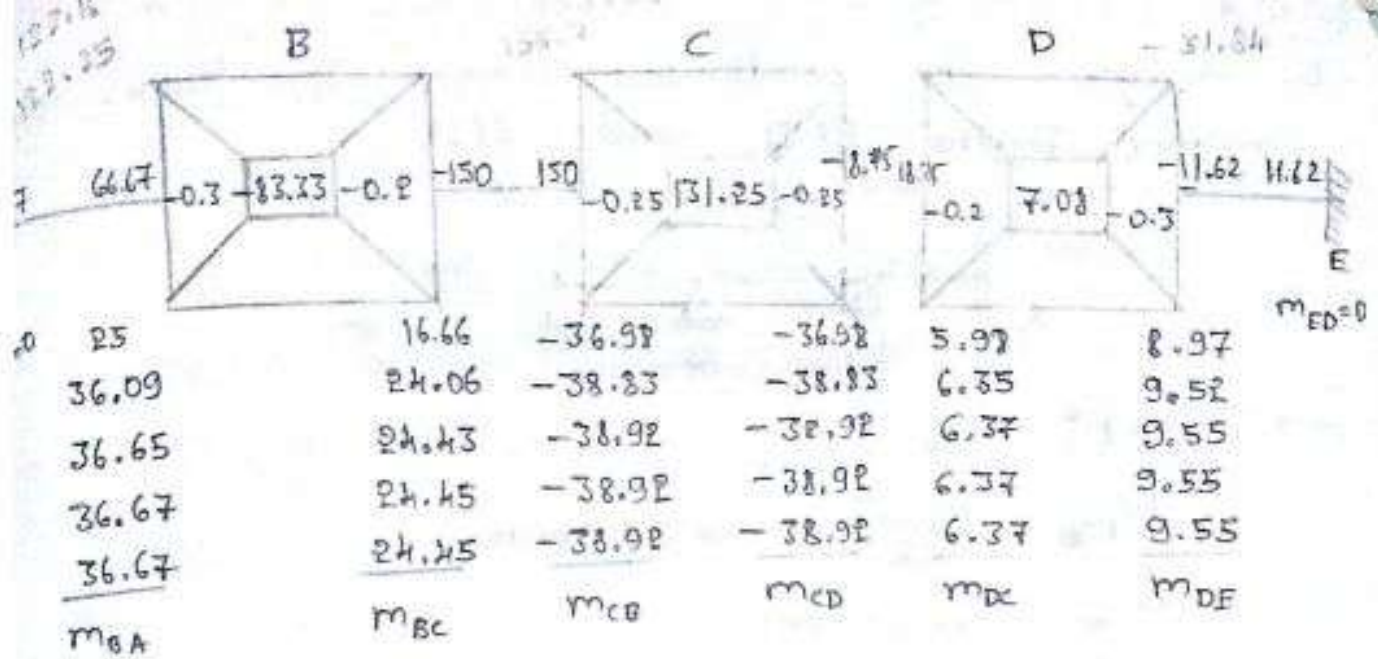 B C D - 31.84
7 66.67 -0.3 -83.33 -0.2 -150 150 -0.25 131.25 -0.25 -18.75 18.75 -0.2 7.08 -0.3 -11.62 11.62
E
mED=0
.0 25 16.66 -36.98 -36.98 5.98 8.97
36.09 24.06 -38.83 -38.83 6.35 9.52
36.65 24.43 -38.92 -38.92 6.37 9.55
36.67 24.45 -38.92 -38.92 6.37 9.55
36.67 24.45 -38.92 -38.92 6.37 9.55
mBA mBC mCB mCD mDC mDE